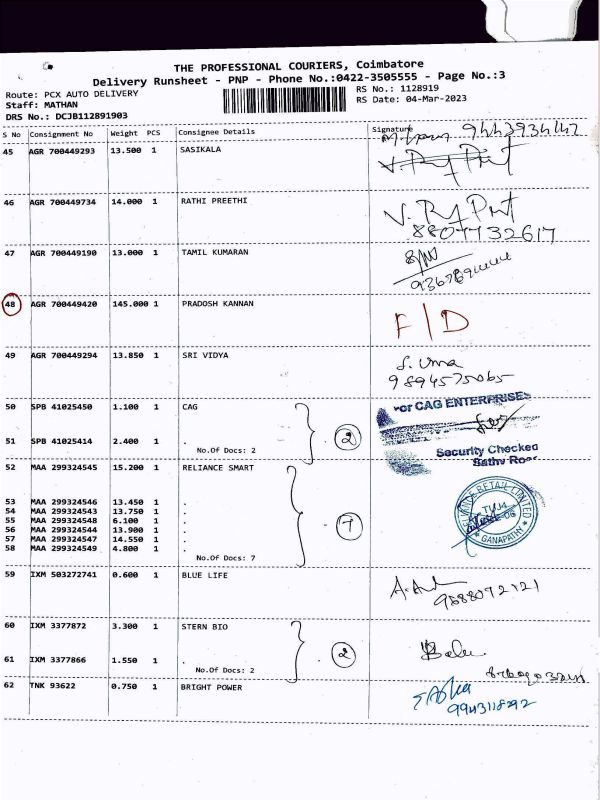 THE PROFESSIONAL COURIERS, Coimbatore
Delivery Runsheet - PNP - Phone No.:0422-3505555 - Page No.:3
Route: PCX AUTO DELIVERY
RS No.: 1128919
Staff: MATHAN
RS Date: 04-Mar-2023
DRS No.: DCJB112891903
S No Consignment No Weight PCS Consignee Details Signature
45 AGR 700449293 13.500 1 SASIKALA
46 AGR 700449734 14.000 1 RATHI PREETHI
8807732617
47 AGR 700449190 13.000 1 TAMIL KUMARAN
48 AGR 700449420 145.000 1 PRADOSH KANNAN F/D
49 AGR 700449294 13.850 1 SRI VIDYA S. Uma
9894575065
50 SPB 41025450 1.100 1 CAG
For CAG ENTERPRISES
51 SPB 41025414 2.400 1 .
No.Of Docs: 2 2
Security Checked
52 MAA 299324545 15.200 1 RELIANCE SMART
53 MAA 299324546 13.450 1 .
54 MAA 299324543 13.750 1 .
55 MAA 299324548 6.100 1 .
56 MAA 299324544 13.900 1 .
57 MAA 299324547 14.550 1 .
58 MAA 299324549 4.800 1 .
No.Of Docs: 7 7
RETAIL LIMITED
GANAPATHY
59 IXM 503272741 0.600 1 BLUE LIFE
9588072121
60 IXM 3377872 3.300 1 STERN BIO
61 IXM 3377866 1.550 1 .
No.Of Docs: 2 2
62 TNK 93622 0.750 1 BRIGHT POWER
9943118292